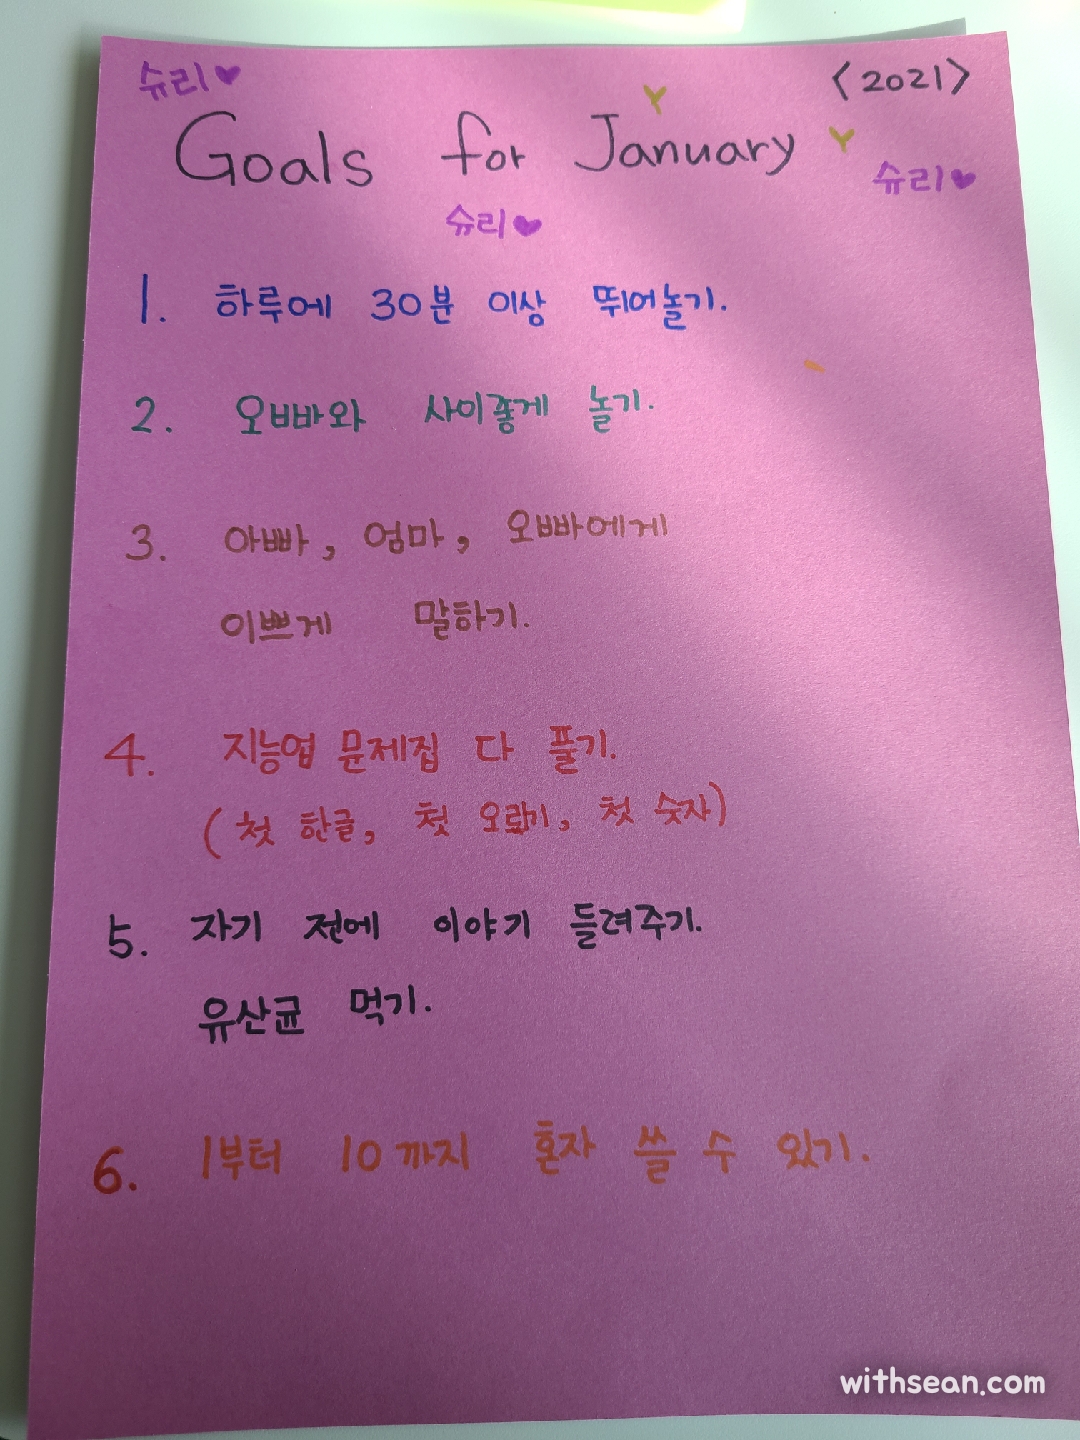 슈리♥
<2021>
Goals for January
슈리♥
슈리♥
1. 하루에 30분 이상 뛰어놀기.
2. 오빠와 사이좋게 놀기.
3. 아빠, 엄마, 오빠에게
이쁘게 말하기.
4. 지능업 문제집 다 풀기.
(첫 한글, 첫 오리기, 첫 숫자)
5. 자기 전에 이야기 들려주기.
유산균 먹기.
6. 1부터 10까지 혼자 쓸 수 있기.
withsean.com